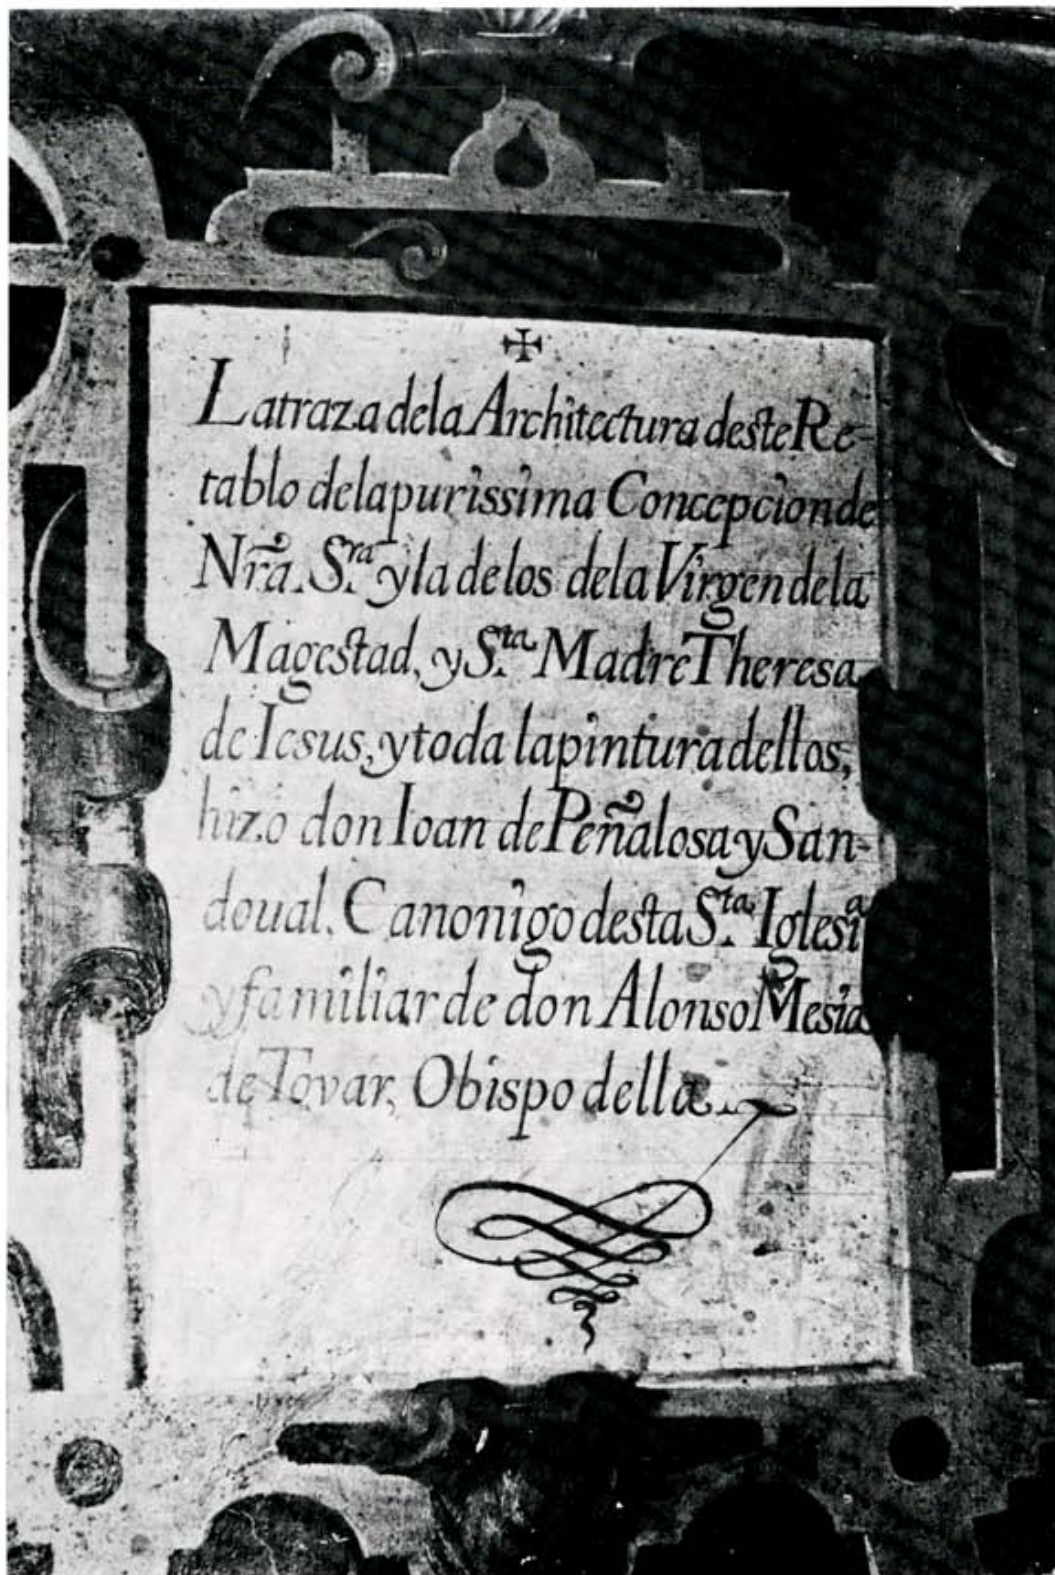 ✠
La traza de la Architectura deste Re-
tablo de la purissima Concepcion de
Nrã. S.ra y la de los de la Virgen de la
Magestad, y S.ta Madre Theresa
de Iesus, y toda la pintura dellos,
hizo don Ioan de Peñalosa y San-
doual. Canonigo desta S.ta Iglesia
y familiar de don Alonso Mesia
de Tovar, Obispo della.